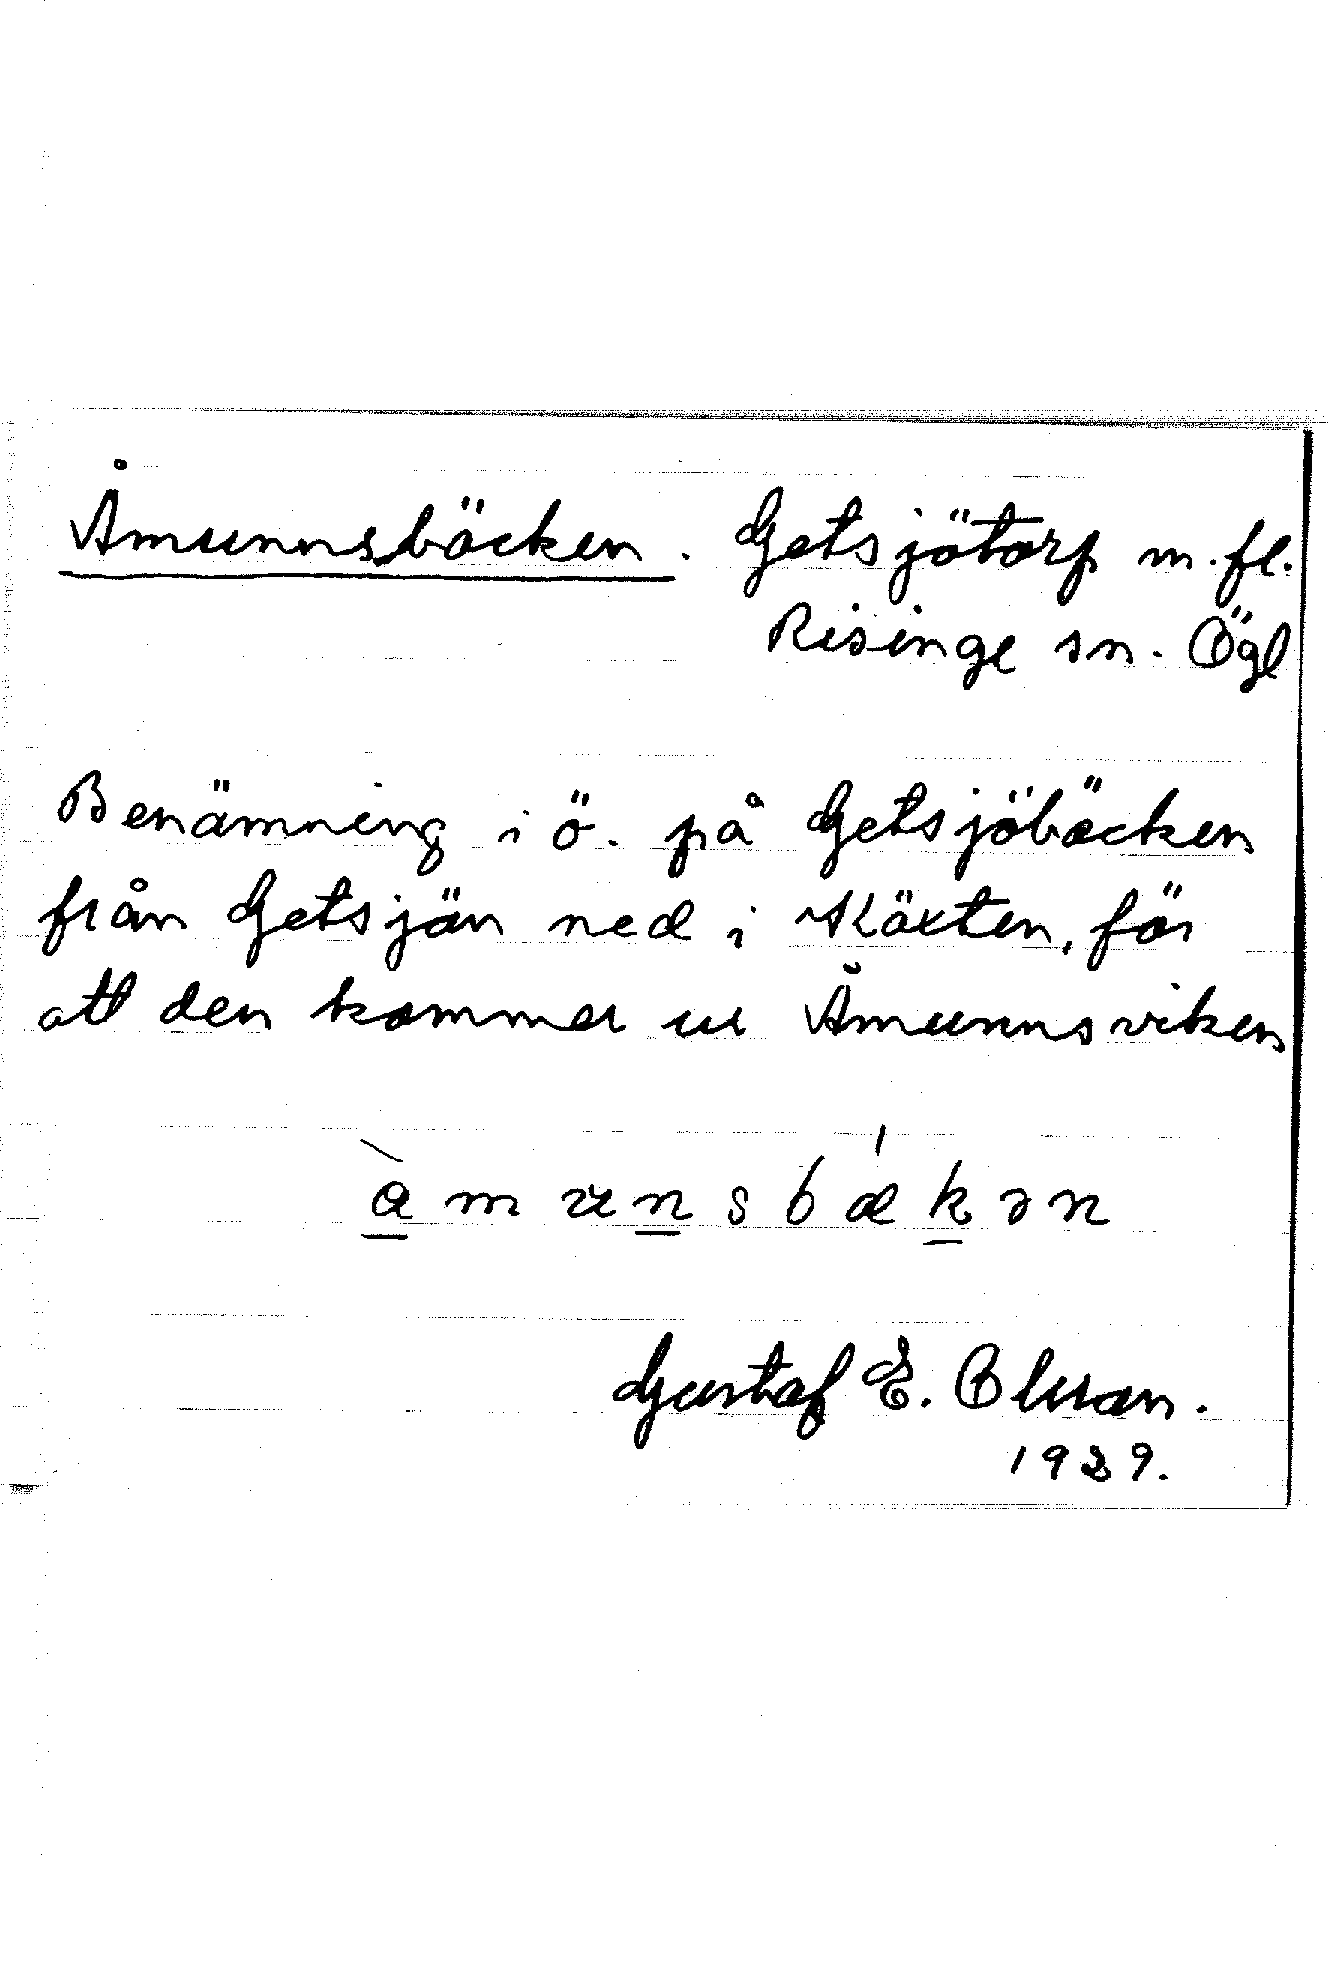 Åmunnsbäcken. Getsjötorp m.fl.
Risinge sn. Ögl
Benämning i ö. på Getsjöbäcken
från Getsjön ned i Käxten, för
att den kommer ur Åmunnsviken
åmunsbækən
Gustaf E. Olsson.
1939.